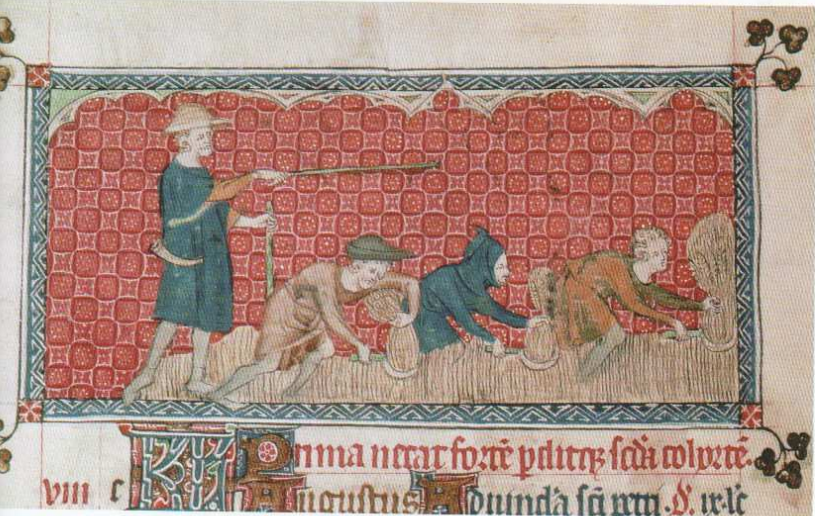 Prima necat fortē pditq; scda cohortē.
viii c KL Augustus Aduincla sci petri . ix . lc